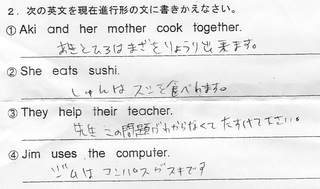 2. 次の英文を現在進行形の文に書きかえなさい。
① Aki and her mother cook together.
あきとひろはまざをりょうり出来ます。
② She eats sushi.
しゅんは スシを食べれます。
③ They help their teacher.
先生 この問題がわからなくて たすけて下さい。
④ Jim uses the computer.
ジムは コンパスがスキです